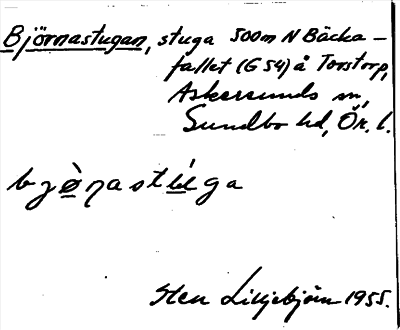 Björnastugan, stuga 500m N Bäcka-
fallet (G 54) å Torstorp,
Askersunds sn,
Sundbo hd, Ök. l.
bjø̀ṇastúga
Sten Liljebjörn 1955.